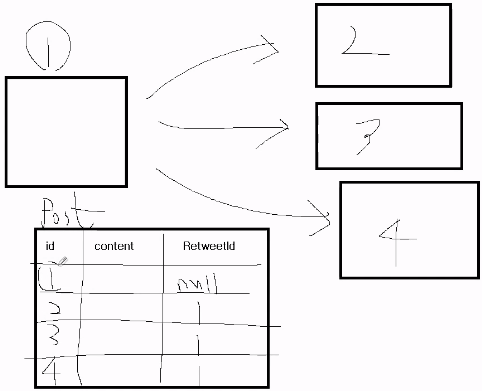 1
2
3
4
Post
id content RetweetId
1 null
2 1
3 1
4 1